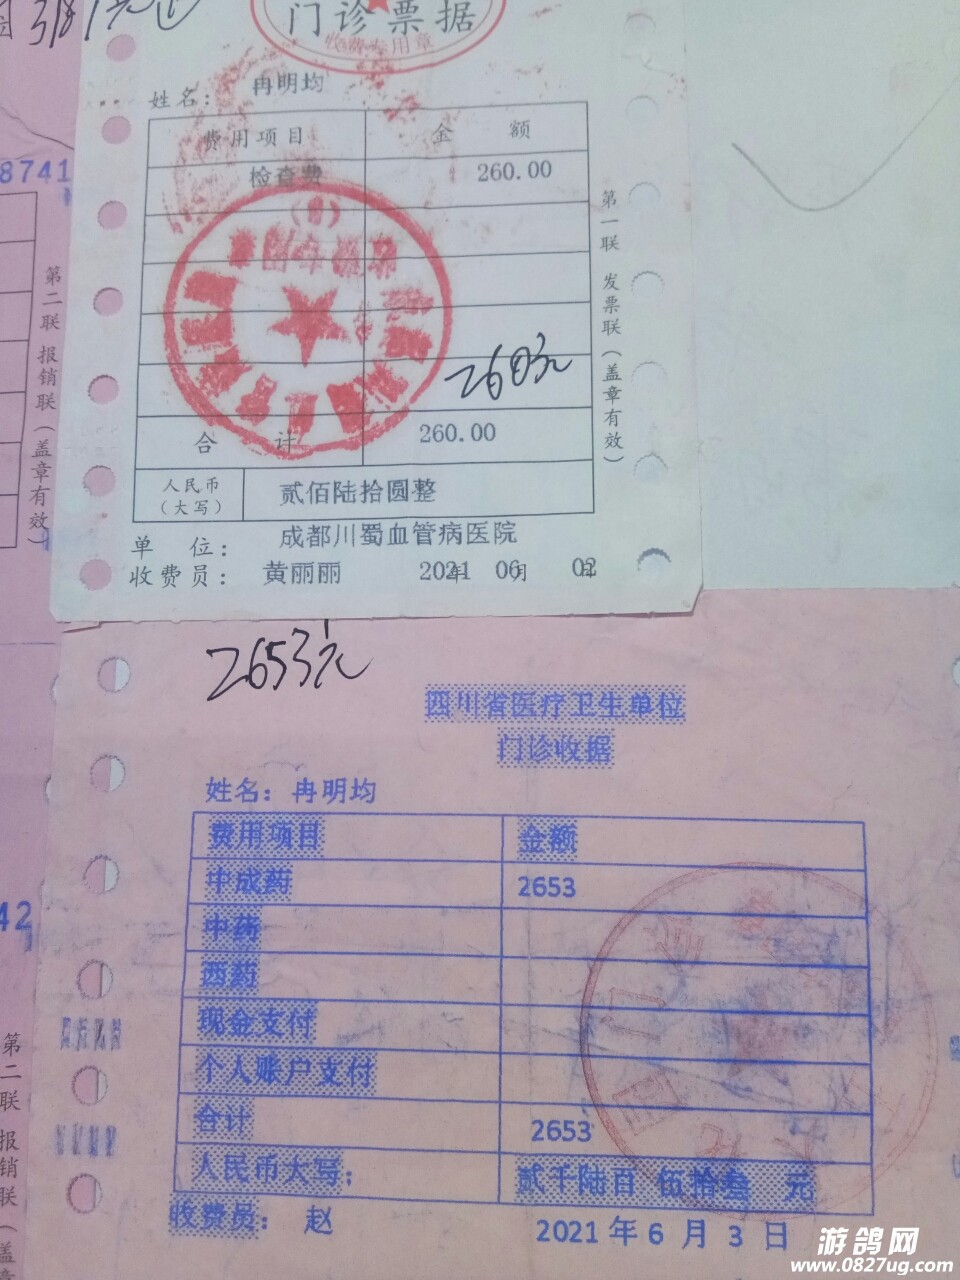 3181元
门诊票据
收费专用章
姓名： 冉明均
费用项目 金 额
检查费 260.00
8741
第一联 发票联（盖章有效）
第二联 报销联（盖章有效）
260元
合 计 260.00
人民币（大写） 贰佰陆拾圆整
单 位： 成都川蜀血管病医院
收费员： 黄丽丽 2021年 06月 02日
2653元
四川省医疗卫生单位
门诊收据
姓名：冉明均
费用项目 金额
中成药 2653
中药
西药
现金支付
个人账户支付
合计 2653
人民币大写； 贰千陆百 伍拾叁 元
收费员： 赵 2021 年 6 月 3 日
42
第二联 报销联（盖
游鸽网
www.0827ug.com